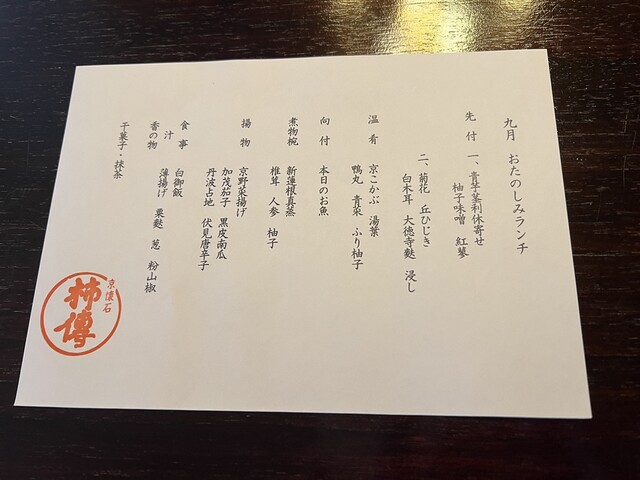 九月 おたのしみランチ
先付 一、青芋茎利休寄せ
柚子味噌 紅蓼
二、菊花 丘ひじき
白木耳 大徳寺麩 浸し
温肴 京こかぶ 湯葉
鴨丸 青菜 ふり柚子
向付 本日のお魚
煮物椀 新蓮根真蒸
椎茸 人参 柚子
揚物 京野菜揚げ
加茂茄子 黒皮南瓜
丹波占地 伏見唐辛子
食事 白御飯
汁 薄揚げ 粟麩 葱 粉山椒
香の物
干菓子・抹茶
京懐石
柿傳